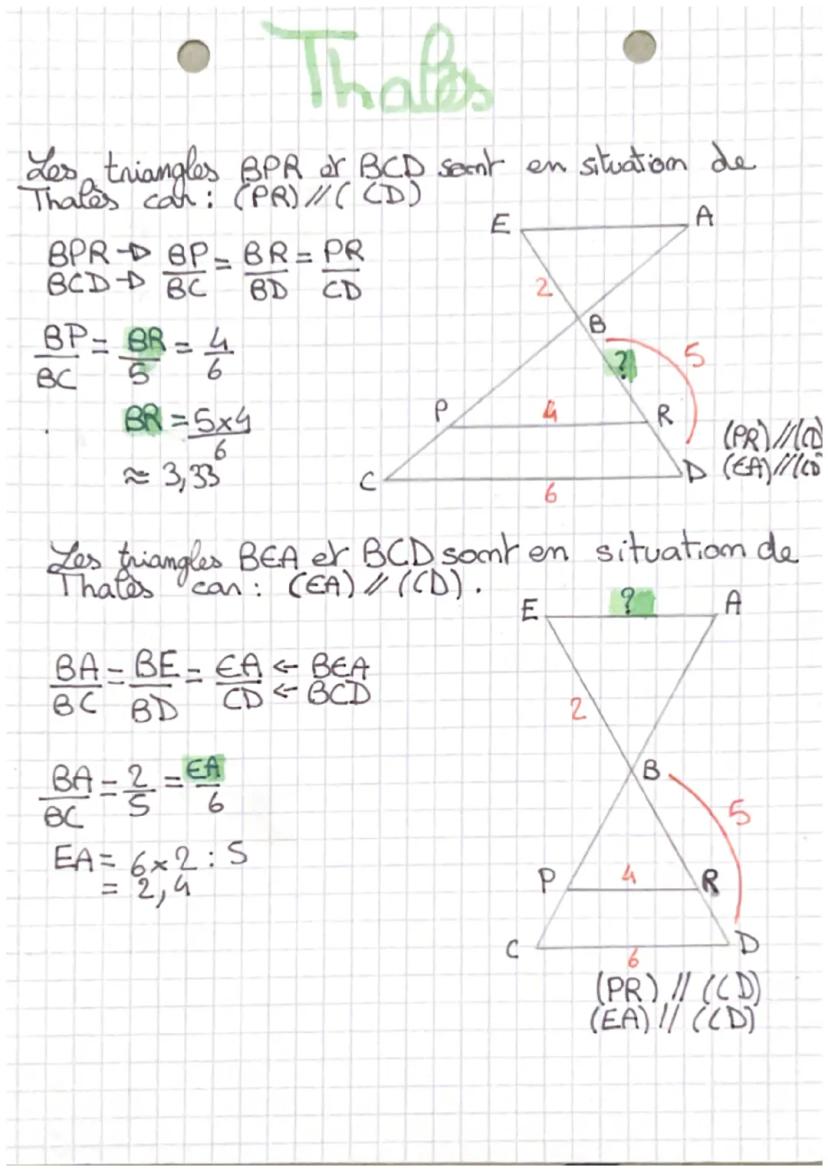 Thalès
Les triangles BPR et BCD sont en situation de
Thalès car : (PR) // (CD)
BPR → BP/BC = BR/BD = PR/CD
BCD →
BP/BC = BR/5 = 4/6
BR = 5x4/6
≈ 3,33
E A
2
B
? 5
P 4 R
C 6 D
(PR)//(CD
(EA)//(CD
Les triangles BEA et BCD sont en situation de
Thalès car : (EA) // (CD).
BA/BC = BE/BD = EA/CD ← BEA
← BCD
BA/BC = 2/5 = EA/6
EA = 6x2 : 5
= 2,4
E ? A
2
B
5
P 4 R
C 6 D
(PR) // (CD)
(EA) // (CD)